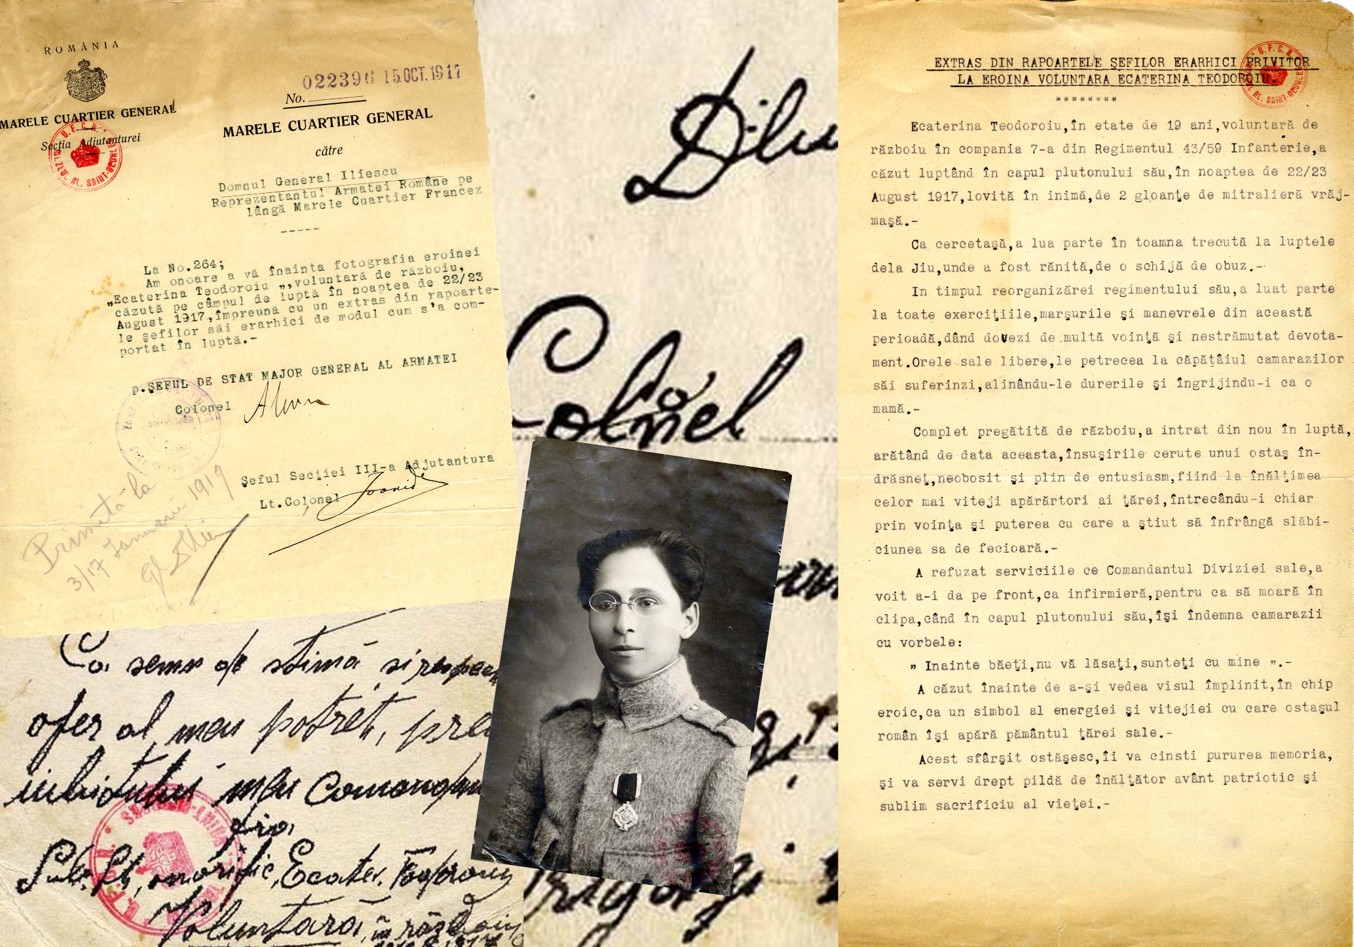 ROMÂNIA
MARELE CUARTIER GENERAL
Secția Adjutanturei
022396 15 OCT. 1917
No.
MARELE CUARTIER GENERAL
către
Domnul General Iliescu
Reprezentantul Armatei Române pe
lângă Marele Cuartier Francez
-----
La No.264;
Am onoare a vă înainta fotografia eroinei
„Ecaterina Teodoroiu „,voluntară de războiu,
căzută pe câmpul de luptă în noaptea de 22/23
August 1917,împreună cu un extras din rapoarte-
le șefilor săi erarhici de modul cum s'a com-
portat în luptă.-
p.ȘEFUL DE STAT MAJOR GENERAL AL ARMATEI
Colonel
Șeful Secției III-a Adjutantura
Lt.Colonel
Primită la
3/17 Ianuarie 1919
Colonel
Ca semn de stimă și respect
ofer al meu potret, prea
iubitului meu Comandant
Sub. Lt. onorific, Ecater. Teodoroiu
Voluntară în războiu
EXTRAS DIN RAPOARTELE ȘEFILOR ERARHICI PRIVITOR
LA EROINA VOLUNTARA ECATERINA TEODOROIU.
Ecaterina Teodoroiu,în etate de 19 ani,voluntară de
războiu în compania 7-a din Regimentul 43/59 Infanterie,a
căzut luptând în capul plutonului său,în noaptea de 22/23
August 1917,lovită în inimă,de 2 gloanțe de mitralieră vrăj-
mașă.-
Ca cercetașă,a lua parte în toamna trecută la luptele
dela Jiu,unde a fost rănită,de o schijă de obuz.-
In timpul reorganizărei regimentului său,a luat parte
la toate exercițiile,marșurile și manevrele din această
perioadă,dând dovezi de multă voință și nestrămutat devota-
ment.Orele sale libere,le petrecea la căpătâiul camarazilor
săi suferinzi,alinându-le durerile și îngrijindu-i ca o
mamă.-
Complet pregătită de războiu,a intrat din nou în luptă,
arătând de data aceasta,însușirile cerute unui ostaș în-
drăsneț,neobosit și plin de entusiasm,fiind la înălțimea
celor mai viteji apărărtori ai țărei,întrecându-i chiar
prin voința și puterea cu care a știut să înfrângă slăbi-
ciunea sa de fecioară.-
A refuzat serviciile ce Comandantul Diviziei sale,a
voit a-i da pe front,ca infirmieră,pentru ca să moară în
clipa,când în capul plutonului său,își îndemna camarazii
cu vorbele:
„ Inainte băeți,nu vă lăsați,sunteți cu mine „.-
A căzut înainte de a-și vedea visul împlinit,în chip
eroic,ca un simbol al energiei și vitejiei cu care ostașul
român își apără pământul țărei sale.-
Acest sfârșit ostășesc,îi va cinsti pururea memoria,
și va servi drept pildă de înălțător avânt patriotic și
sublim sacrificiu al vieței.-